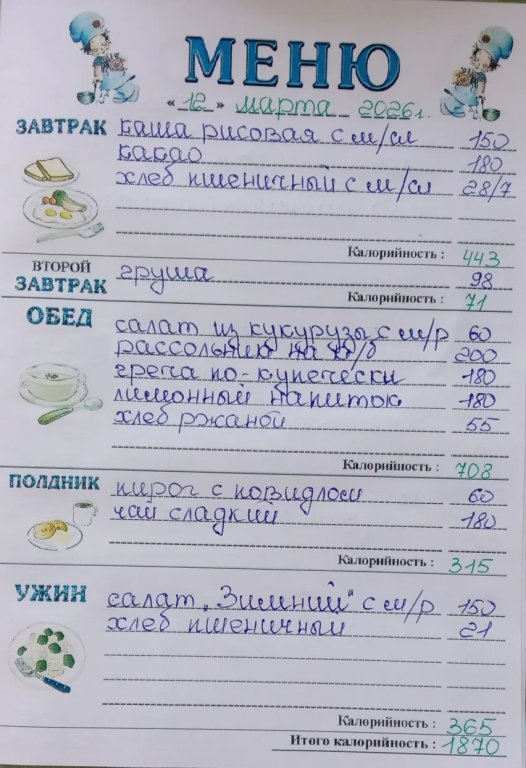 МЕНЮ
«12» марта 2026г.
ЗАВТРАК каша рисовая с м/сл 150
какао 180
хлеб пшеничный с м/сл 28/7
Калорийность : 443
ВТОРОЙ ЗАВТРАК груша 98
Калорийность : 71
ОБЕД
салат из кукурузы с м/р 60
рассольник на к/б 200
греча по-купечески 180
лимонный напиток 180
хлеб ржаной 55
Калорийность : 708
ПОЛДНИК пирог с повидлом 60
чай сладкий 180
Калорийность : 315
УЖИН салат „Зимний" с м/р 150
хлеб пшеничный 21
Калорийность : 365
Итого калорийность : 1870